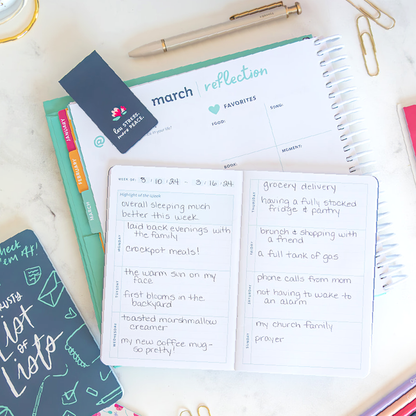 march reflection
FAVORITES
FOOD:
SONG:
BOOK:
MOMENT:
less STRESS,
more PEACE.
JANUARY
FEBRUARY
MARCH
WEEK OF: 3 / 10 / 24 - 3 / 16 / 24
Highlight of the week:
overall sleeping much
better this week
MONDAY
laid back evenings with
the family
crockpot meals!
TUESDAY
the warm sun on my
face
first blooms in the
backyard
WEDNESDAY
toasted marshmallow
creamer
my new coffee mug-
so pretty!
THURSDAY
grocery delivery
having a fully stocked
fridge & pantry
FRIDAY
brunch & shopping with
a friend
a full tank of gas
SATURDAY
phone calls from mom
not having to wake to
an alarm
SUNDAY
my church family
prayer
check
'em off!
trusty
List
of
Lists